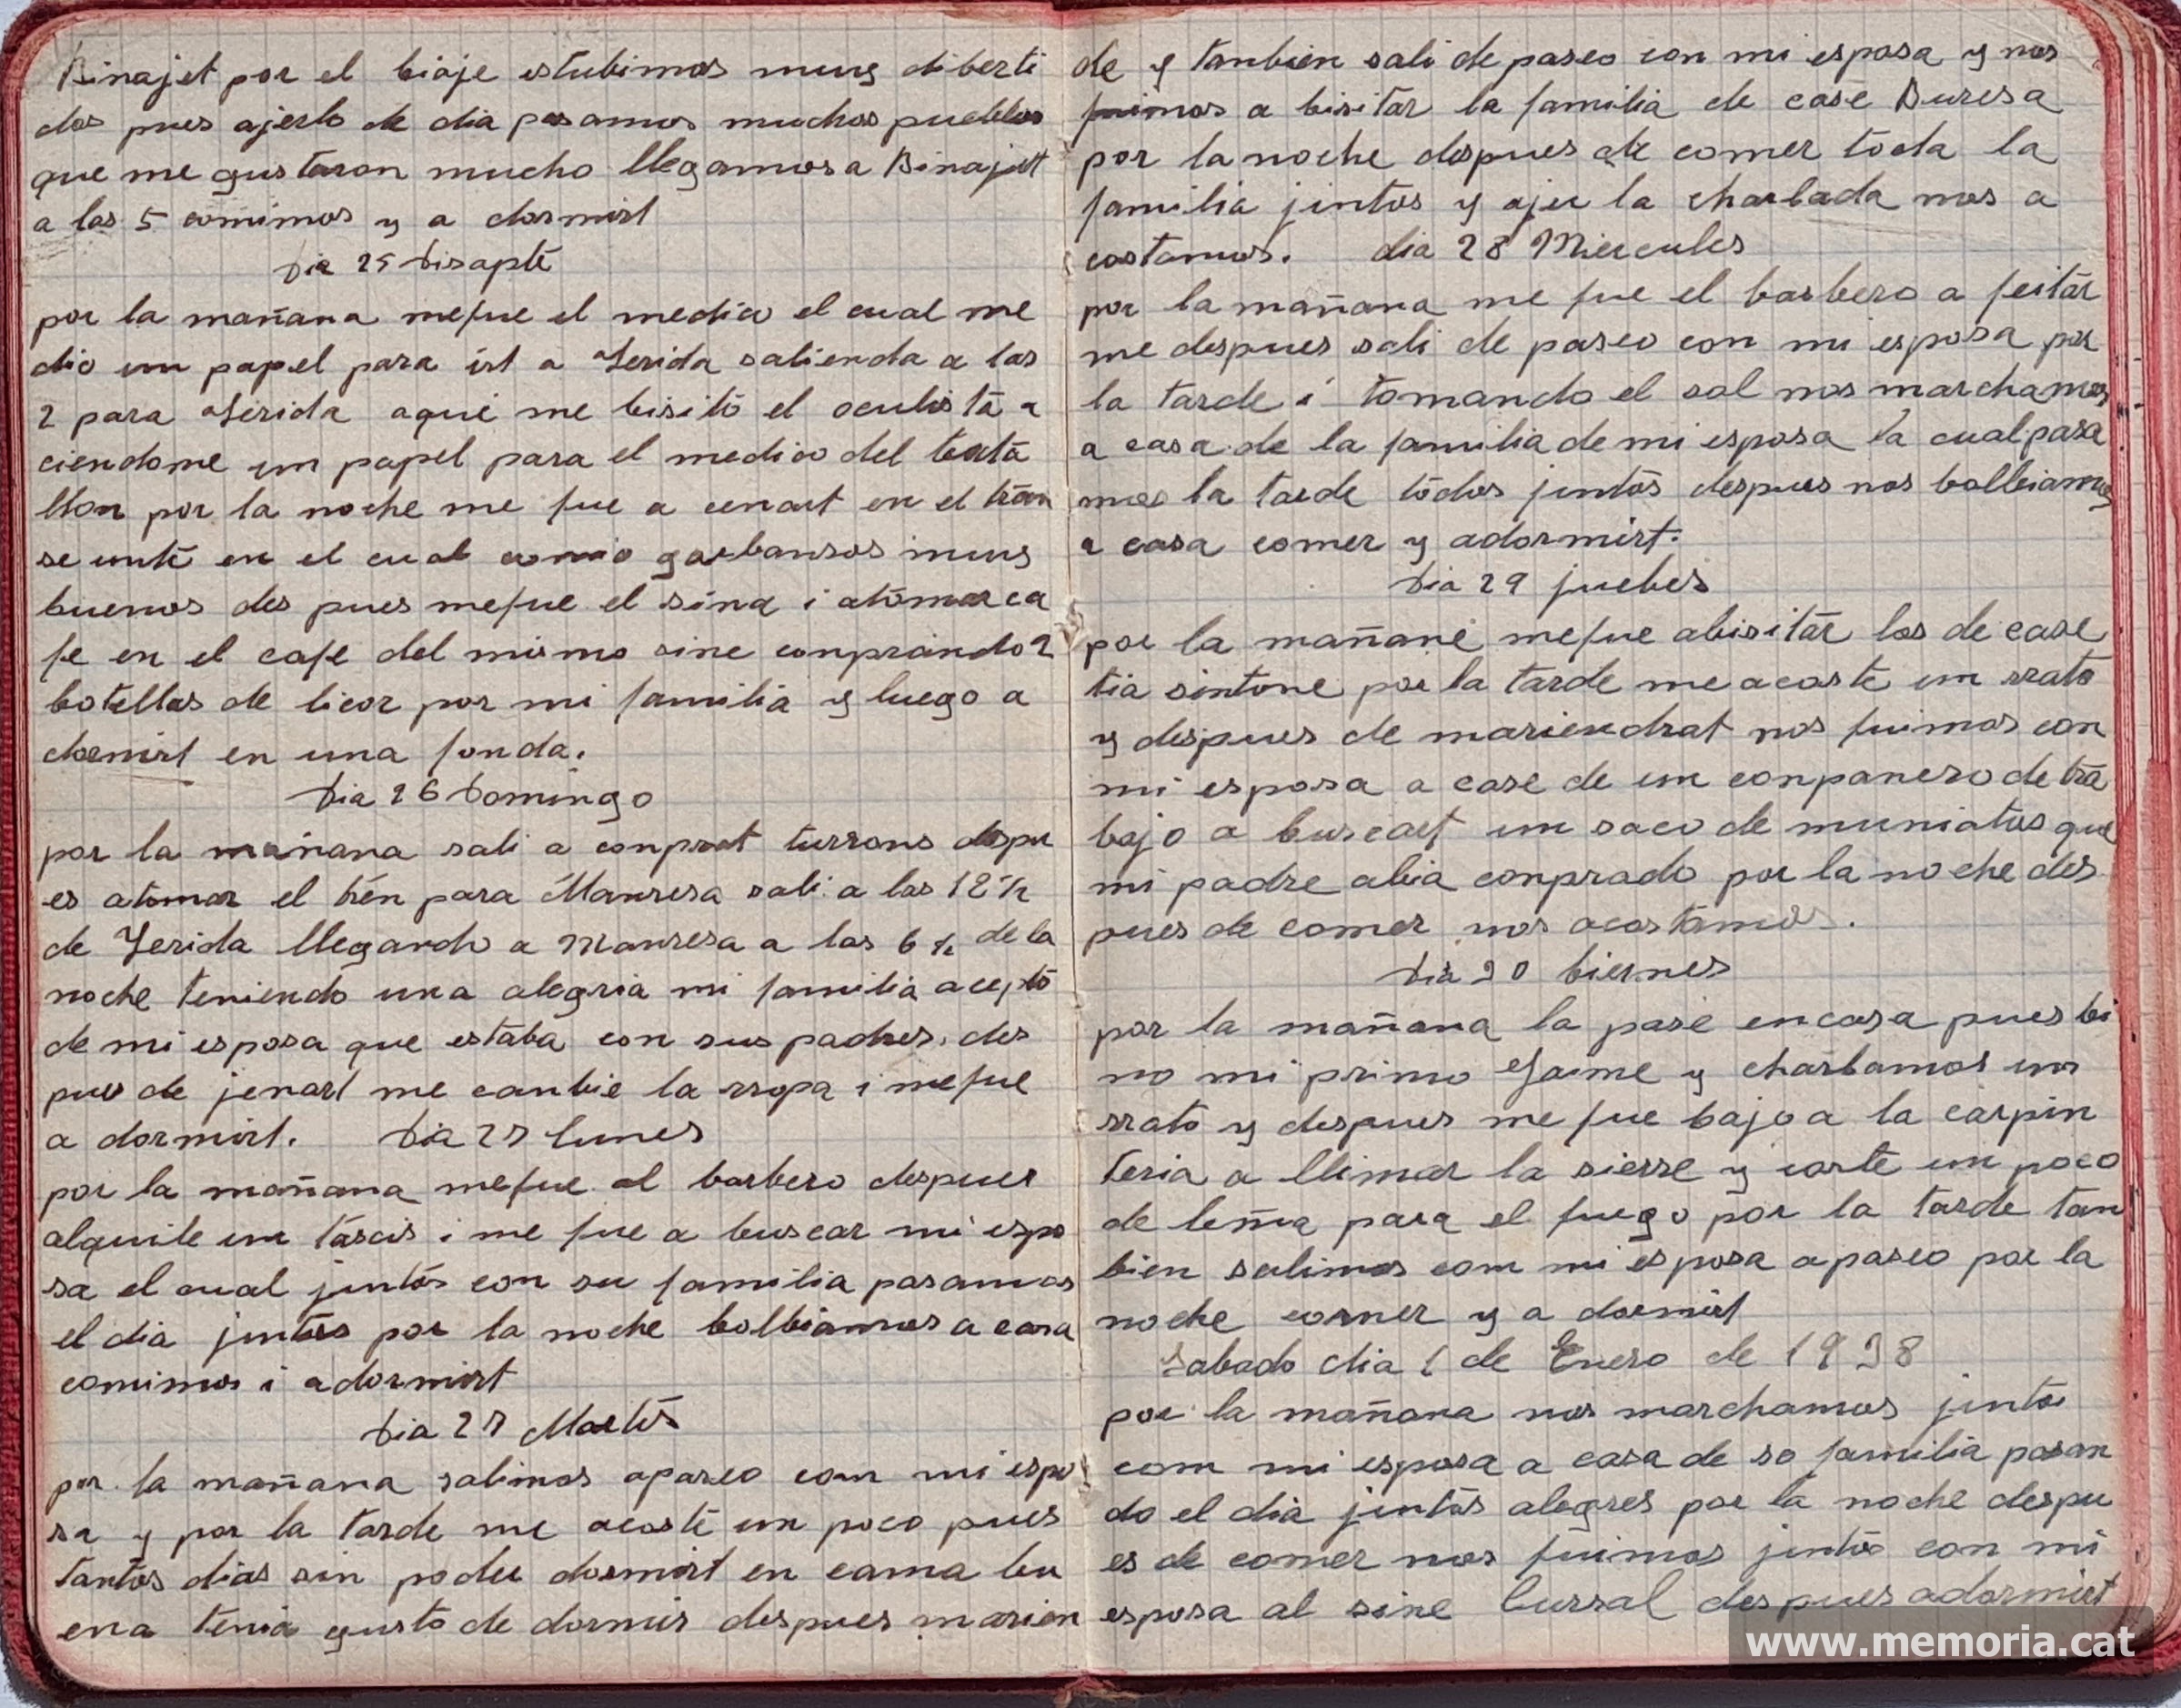 Binajet por el biaje estubimos muy diberti
dos pues ajerlo de dia pasamos muchos pueblos
que me gustaron mucho llegamos a Binajet
a las 5 comimos y a dormirt
Dia 25 Disapte
por la mañana mefue el medico el cual me
dio un papel para irt a Lerida saliendo a las
2 para Lerida aqui me bisitó el oculista a
ciendome un papel para el medico del bata
llon por la noche me fue a cenart en el tran
seunte en el cual comio garbansos muy
buenos des pues mefue el sine i atomar ca
fe en el cafe del mismo sine conprando 2
botellas de licor por mi familia y luego a
dormirt en una fonda.
Dia 26 Domingo
por la mañana sali a conprart turrons despu
es atomar el tren para Manresa sali a las 12½
de Lerida llegando a Manresa a las 6½ de la
noche teniendo una alegria mi familia acepto
de mi esposa que estaba con sus padres. des
pues de jenart me canbie la rropa i mefue
a dormirt. Dia 27 lunes
por la mañana mefue al barbero despues
alquile un tascis i me fue a buscar mi espo
sa el cual juntos con su familia pasamos
el dia juntos por la noche bolbiamos a casa
comimos i adormirt
Dia 27 Martes
por la mañana salimos apaseo com mi espo
sa y por la tarde me acoste un poco pues
tantos dias sin poder dormirt en cama bu
ena tenia gusto de dormir despues marien
de y tanbien sali de paseo con mi esposa y nos
fuimos a bisitar la familia de case Buresa
por la noche despues de comer toda la
familia juntos y ajer la charlada nos a
costamos. dia 28 Miercules
por la mañana me fue el barbero a feitar
me despues sali de paseo con mi esposa por
la tarde i tomando el sol nos marchamos
a casa de la familia de mi esposa la cual pasa
mos la tarde todos juntos despues nos bolbiamos
a casa comer y adormirt.
Dia 29 juebes
por la mañane mefue abisitar los de case
tia sintone por la tarde me acoste un rrato
y despues de mariendrat nos fuimos con
mi esposa a case de un conpanero de tra
bajo a buscart un saco de muniatos que
mi padre abia conprado por la noche des
pues de comer nos acostamos.
Dia 30 biernes
por la mañana la pase encasa pues bi
no mi primo Jaime y charlamos un
rrato y despues me fue bajo a la carpin
teria a llimar la sierre y corte un poco
de leñia para el fuego por la tarde tan
bien salimos com mi esposa apaseo por la
noche comer y a dormirt
Sabado dia 1 de Enero de 1938
por la mañana nos marchamos juntos
com mi esposa a casa de so familia pasan
do el dia juntos alegres por la noche despu
es de comer nos fuimos juntos con mi
esposa al sine Cursal despues adormirt
www.memoria.cat